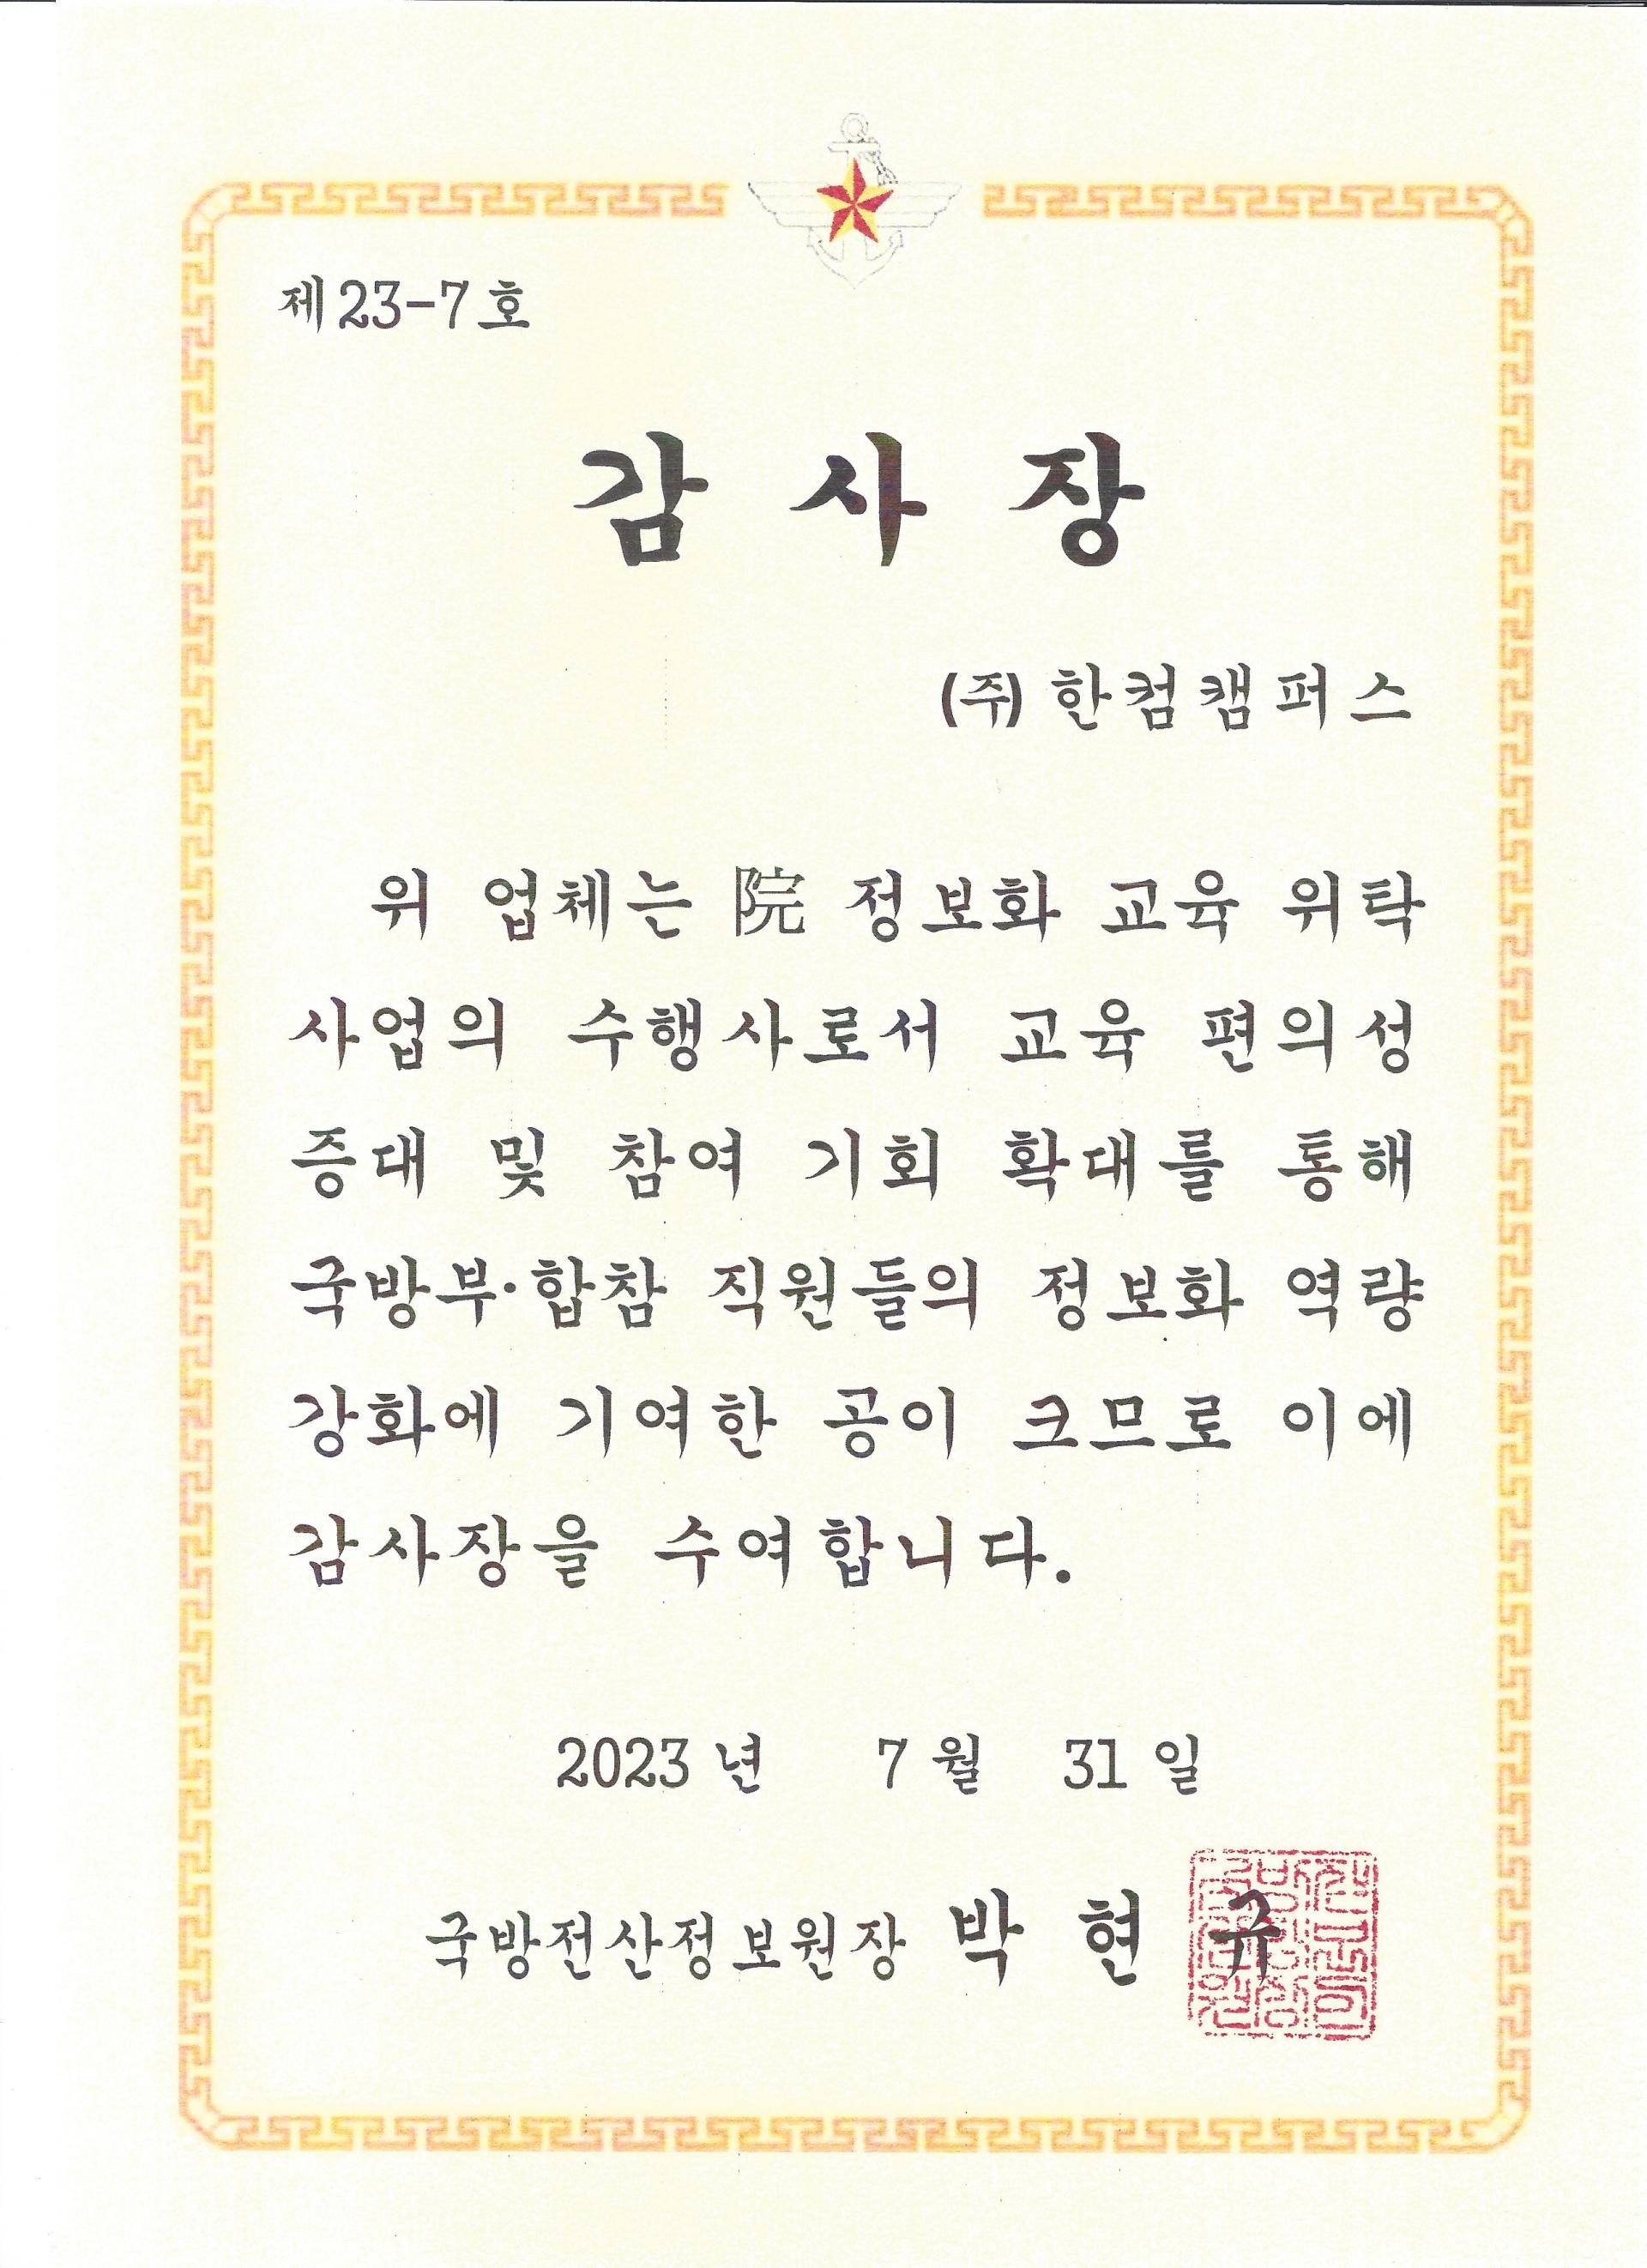 제23-7호
감 사 장
(주) 한컴캠퍼스
위 업체는 院 정보화 교육 위탁
사업의 수행사로서 교육 편의성
증대 및 참여 기회 확대를 통해
국방부·합참 직원들의 정보화 역량
강화에 기여한 공이 크므로 이에
감사장을 수여합니다.
2023 년 7 월 31 일
국방전산정보원장 박 현 규